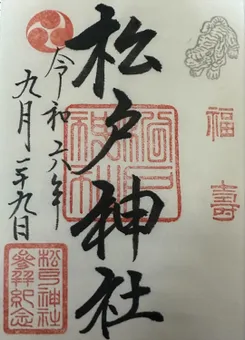 福壽
松戸神社
令和六年
九月二十九日
松戸神社
松戸神社
参拝紀念